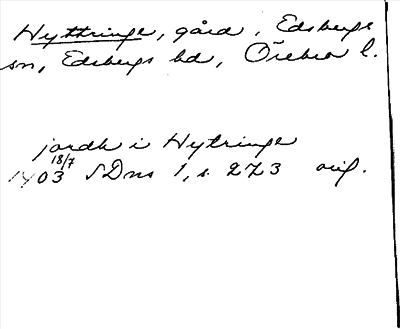 Hyttringe, gård, Edsbergs
sn, Edsbergs hd, Örebro l.
jordh i Hytringe
18/7
1403 SDns 1, s. 273 orig.